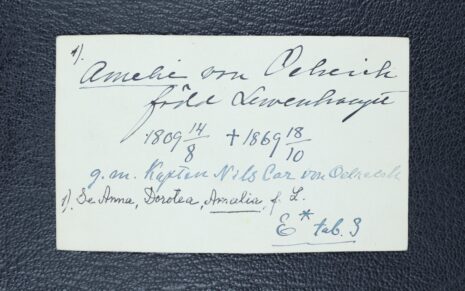 1).
Amelie von Oelreich
född Lewenhaupt
1809 14/8 + 1869 18/10
g.m. Kapten Nils Car von Oelreich
1). Se Anna, Dorotea, Amalia, f. L.
E* tab. 3